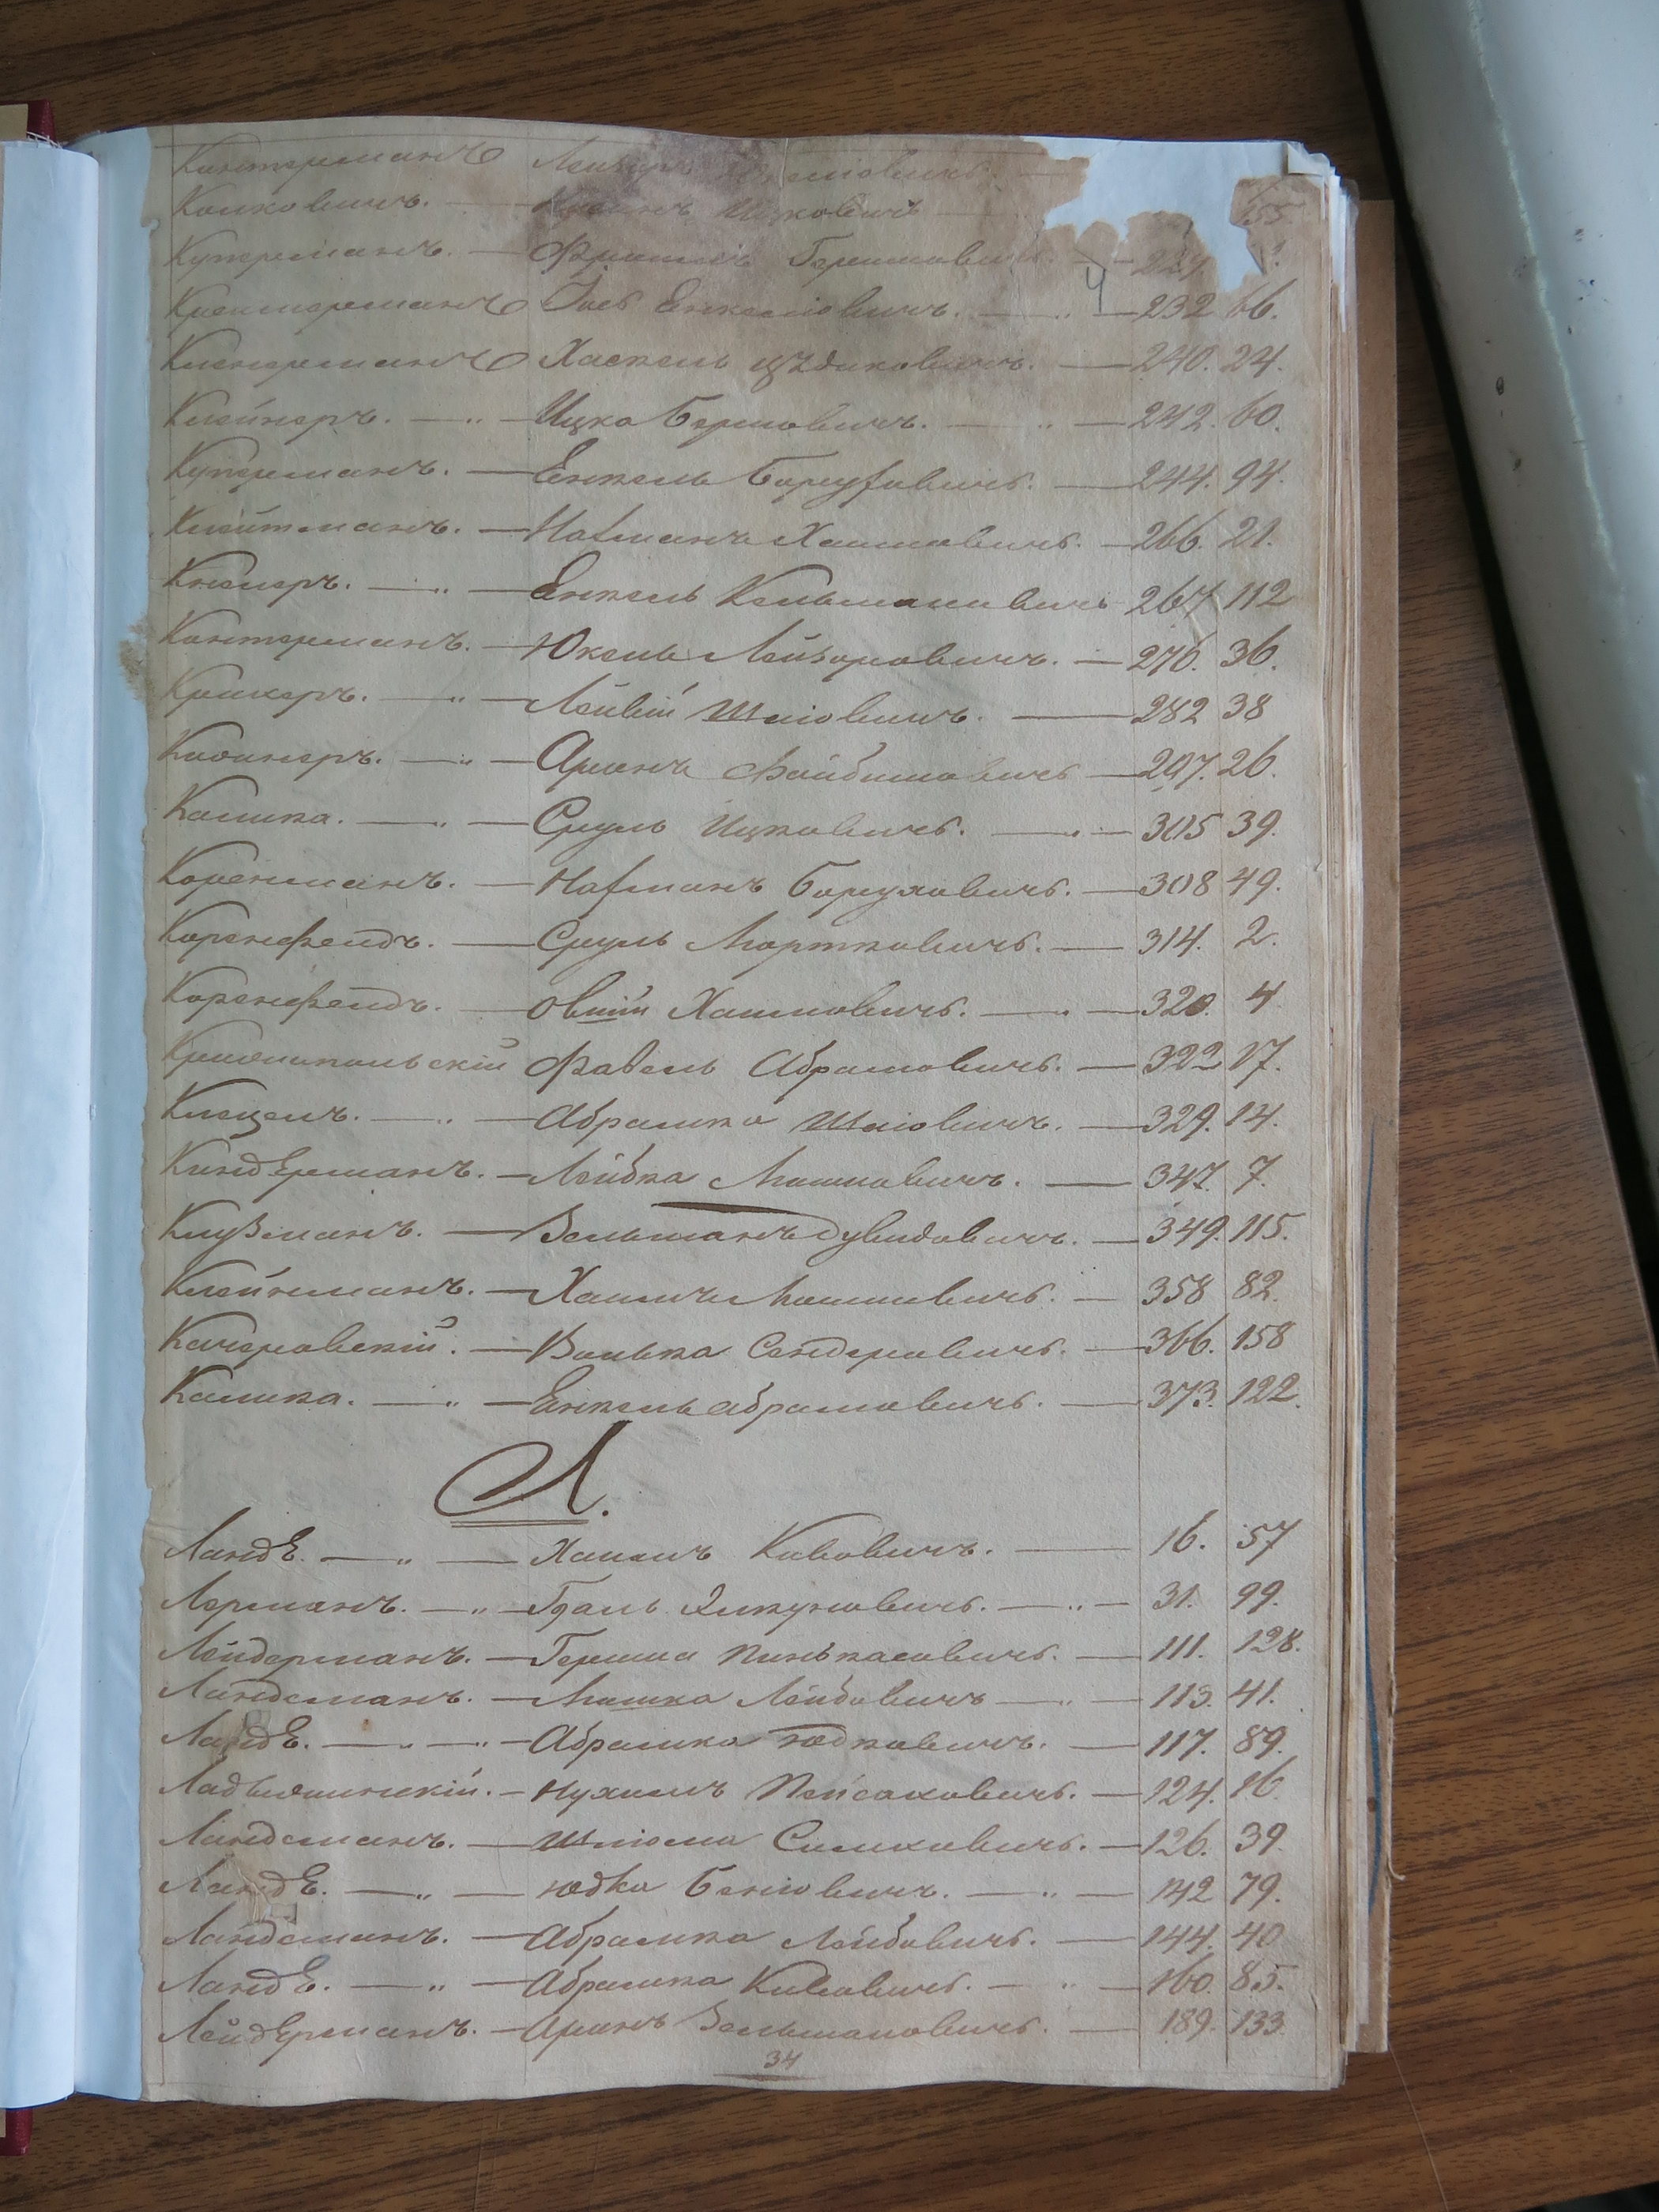 Кантерманъ Лейзеръ
Колковичъ. — Ицковичъ 155.
Куперманъ. — Фроимъ Гершовичъ. — 227
4
Крентерманъ Іосъ Енкеліовичъ. — „ — 232 66.
Хаскель Цѣдиковичъ. — 240. 24.
Клейнеръ. — „ — Ицко Берковичъ. — „ — 242. 60.
Куперманъ. — Енкель Боруховичъ. — 244. 94.
Клейтманъ. — Нахманъ Хаимовичъ. — 266. 21.
Кнелеръ. — „ — Енкель Кельмановичъ 267 112
Кантерманъ. — Юкель Лейзоровичъ. — 276. 36.
— „ — Лейви Шліовичъ. — 282 38
— „ — Аронъ Файбишовичъ — 297. 26.
Калика. — „ — Сруль Ицковичъ. — „ — 305 39.
Коренманъ. — Нахманъ Боруховичъ. — 308 49.
Коренфелдъ. — Сруль Мортковичъ. — 314. 2.
Коренфелдъ. — Овшій Хаимовичъ. — „ — 320. 4
Кривопольскій Фавель Абрамовичъ. — 322 17.
Клецелъ. — „ — Абрамко Шліовичъ. — 329. 14.
КиндЕрманъ. — Лейбка Мошковичъ. — 347. 7.
Клузманъ. — Зельманъ Дувидовичъ. — 349. 115.
Клейнманъ. — Хаимъ Мошковичъ. — 358 82.
Качеровскій. — Волька Сендеровичъ. — 366. 158
Калика. — „ — Енкель Абрамовичъ. — 373. 122.
Л.
ЛандЕ. — „ — Хаимъ Кивовичъ. — 16. 57
Лерманъ. — „ — Гдаль Элкуновичъ. — „ — 31. 99.
Лейдерманъ. — Гершка Пинькасовичъ. — 111. 128.
Ландсманъ. — Мошка Лейбовичъ — „ — 113. 41.
ЛандЕ. — „ — „ — Абрамко Юдковичъ. — 117. 89.
Ладыжинскій. — Нухимъ Пейсаховичъ. — 124. 16.
Ландсманъ. — Шліома Симховичъ. — 126. 39.
ЛандЕ. — „ — Юдко Беніовичъ. — „ — 142 79.
Ландсманъ. — Абрамко Лейбовичъ. — 144. 40
ЛандЕ. — „ — Абрамка Кивовичъ. — „ — 160. 85.
ЛейдЕрманъ. — Аронъ Зельмановичъ. — 189. 133
34